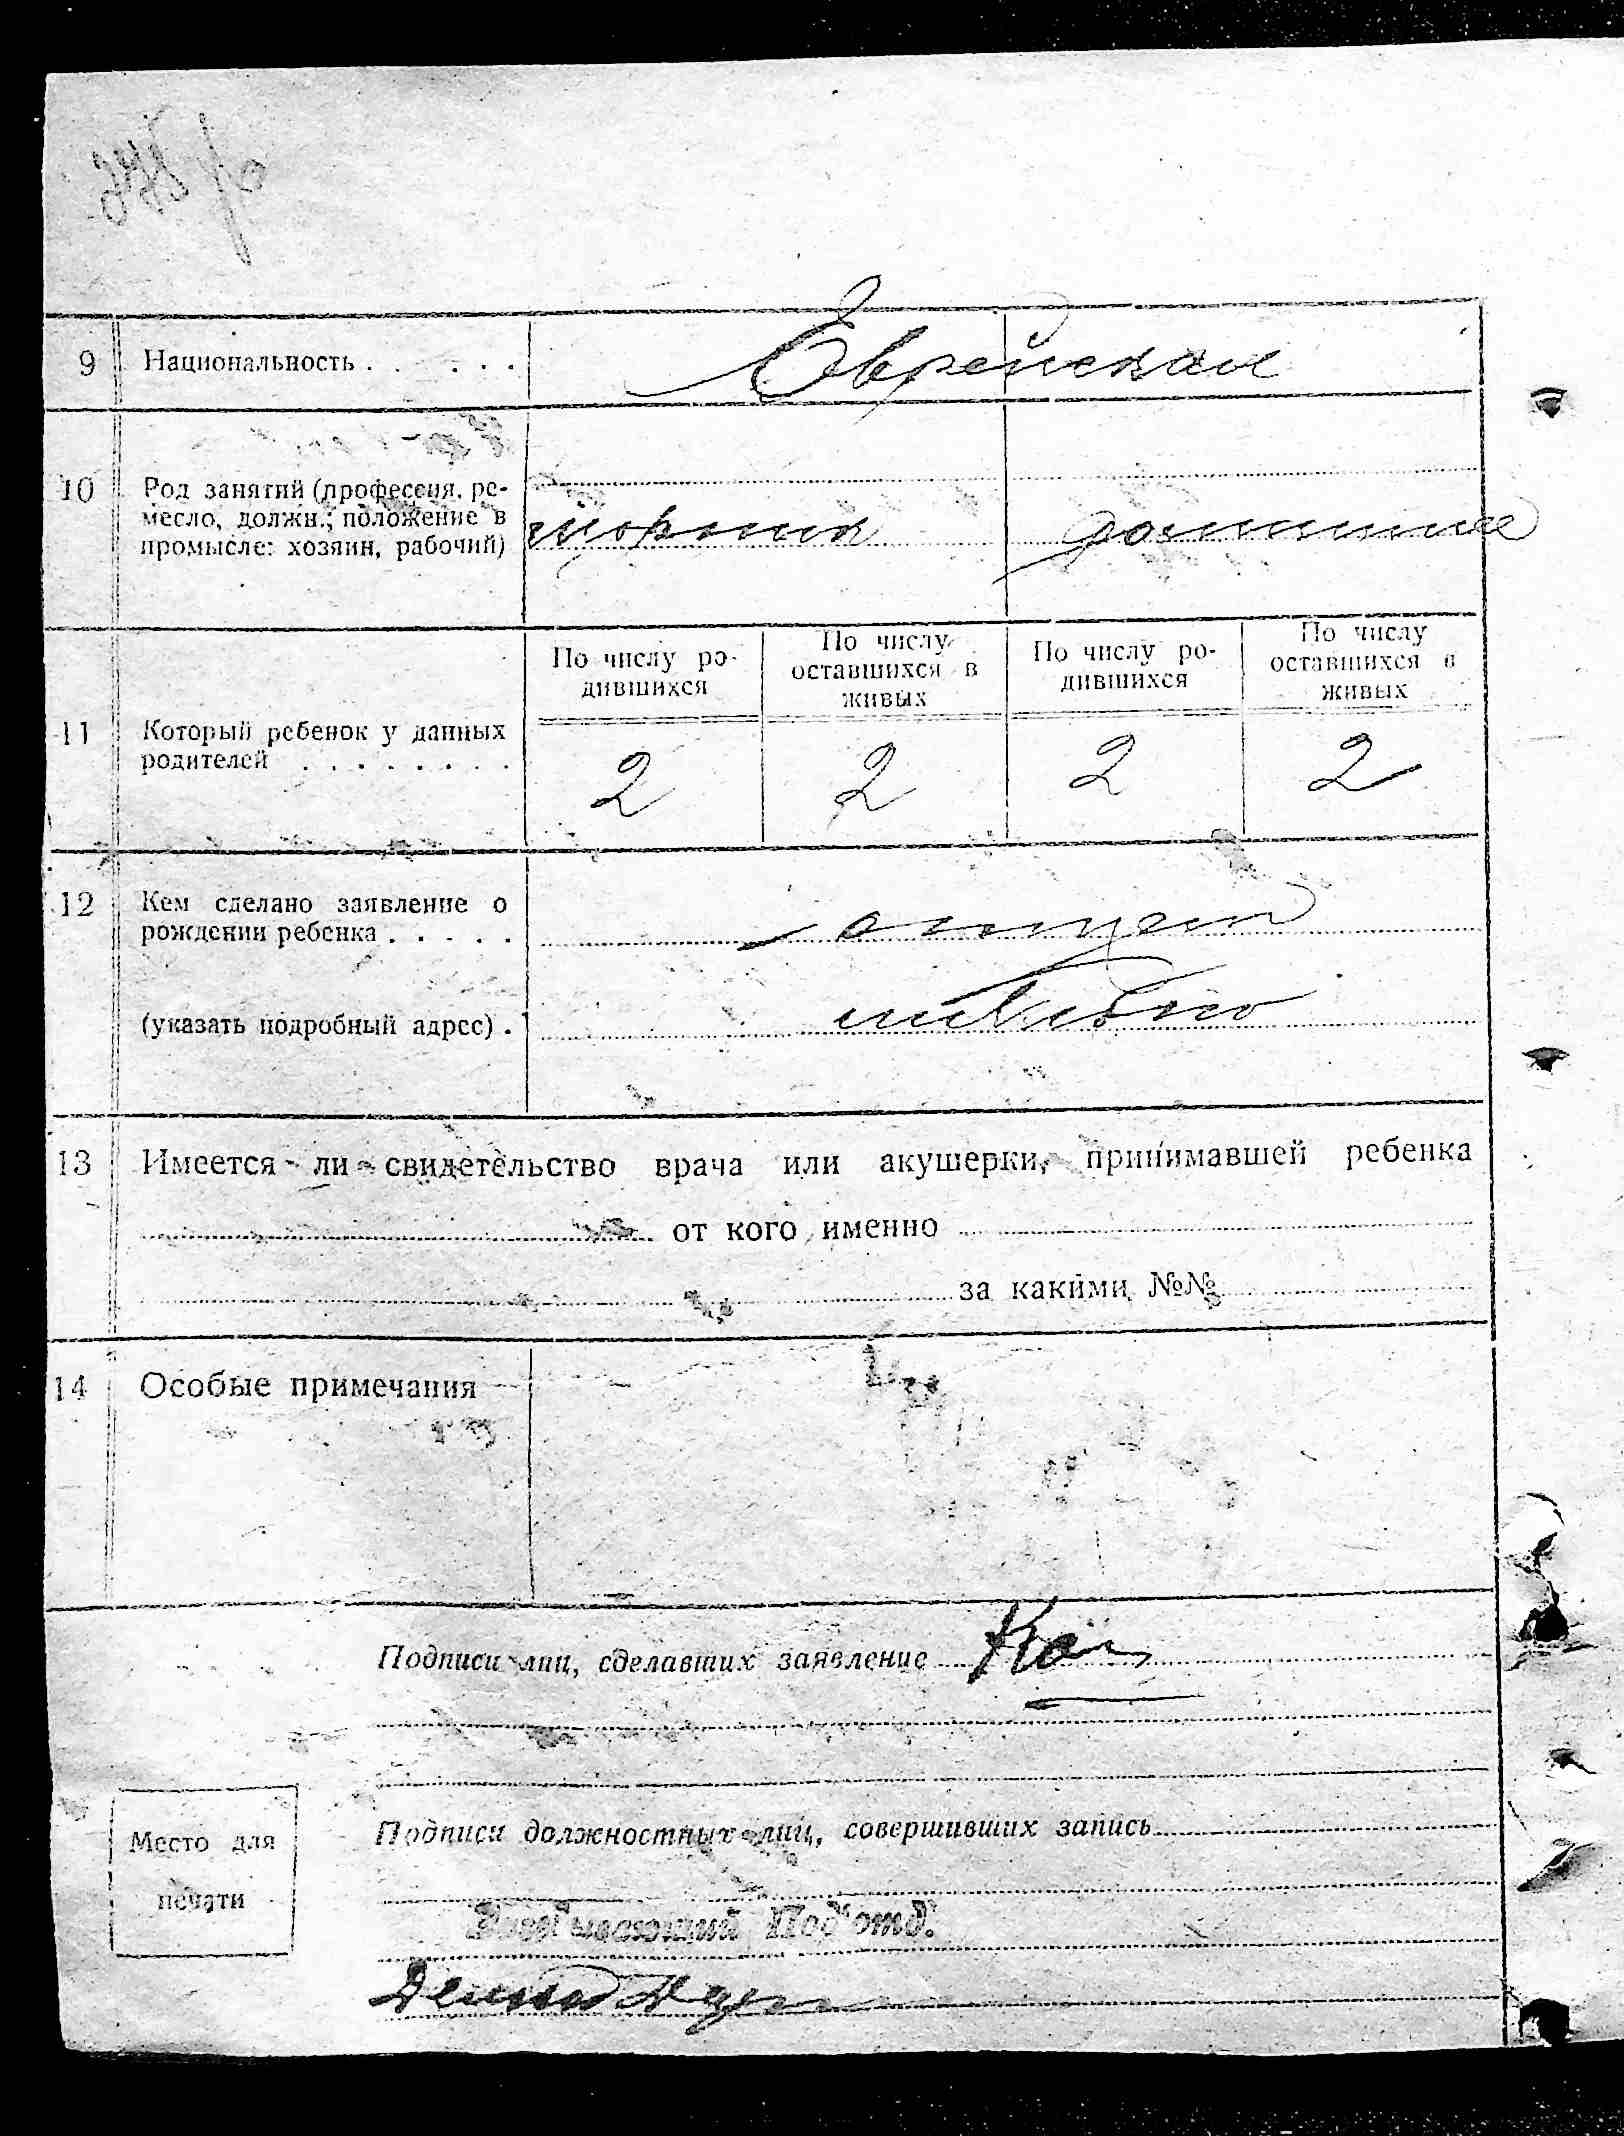 9 Национальность . . . . . .
Еврейская
10 Род занятий (профессия, ре-
месло, должн., положение в
промысле: хозяин, рабочий)
шорник домашнее
По числу ро-
дившихся
По числу
оставшихся в
живых
По числу ро-
дившихся
По числу
оставшихся в
живых
11 Который ребенок у данных
родителей . . . . . . . .
2 2 2 2
12 Кем сделано заявление о
рождении ребенка . . . . .
отцем
(указать подробный адрес) .
13 Имеется ли свидетельство врача или акушерки, принимавшей ребенка
от кого именно
за какими №№
14 Особые примечания
Подписи лиц, сделавших заявление
Подписи должностных лиц, совершивших запись
Место для
печати
Заведывающий Под'отд.